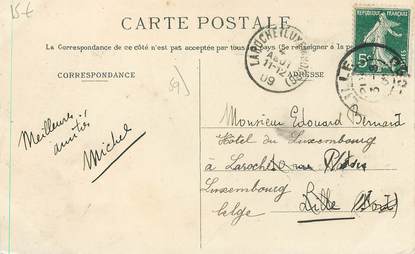 15€
CARTE POSTALE
La Correspondance de ce côté n'est pas acceptée par tous les pays (Se renseigner à la
CORRESPONDANCE
ADRESSE
59)
LAROCHE (LUX
AOUT
11-12
09
REPUBLIQUE FRANÇAISE
5
Meilleures
amitiés
Michel
Monsieur Edouard Bernard
Hôtel du Luxembourg
à Laroche
Luxembourg
belge
Lille (Nord)